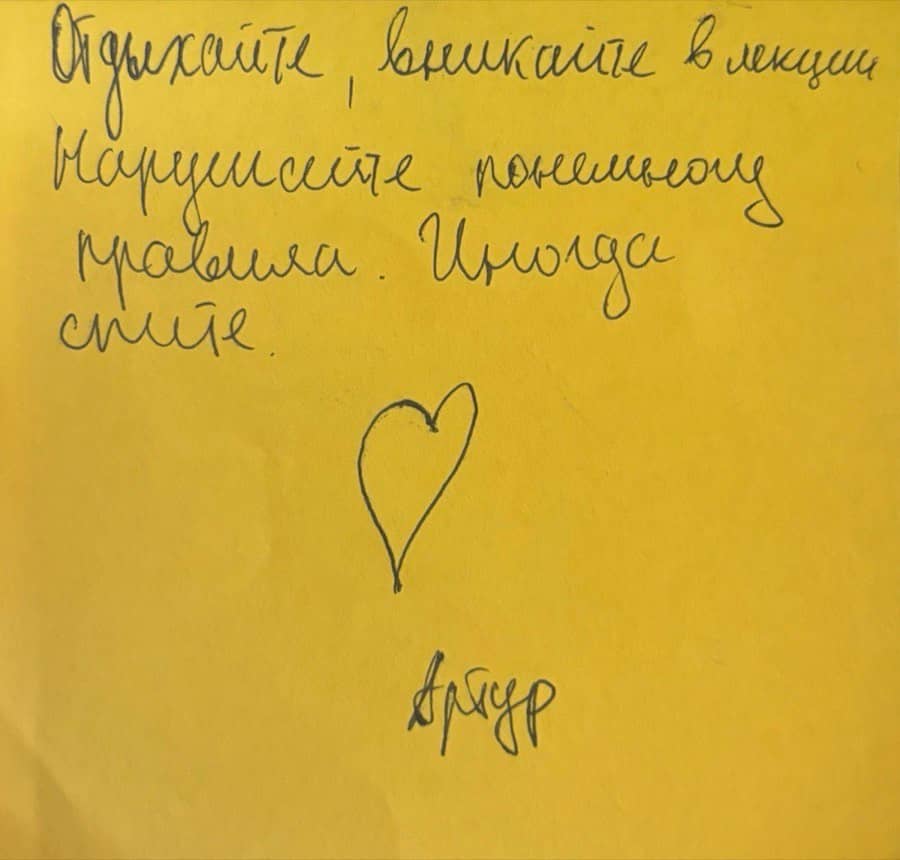 Отдыхайте, вникайте в лекции
Нарушайте понемногу
правила. Иногда
спите.
Артур